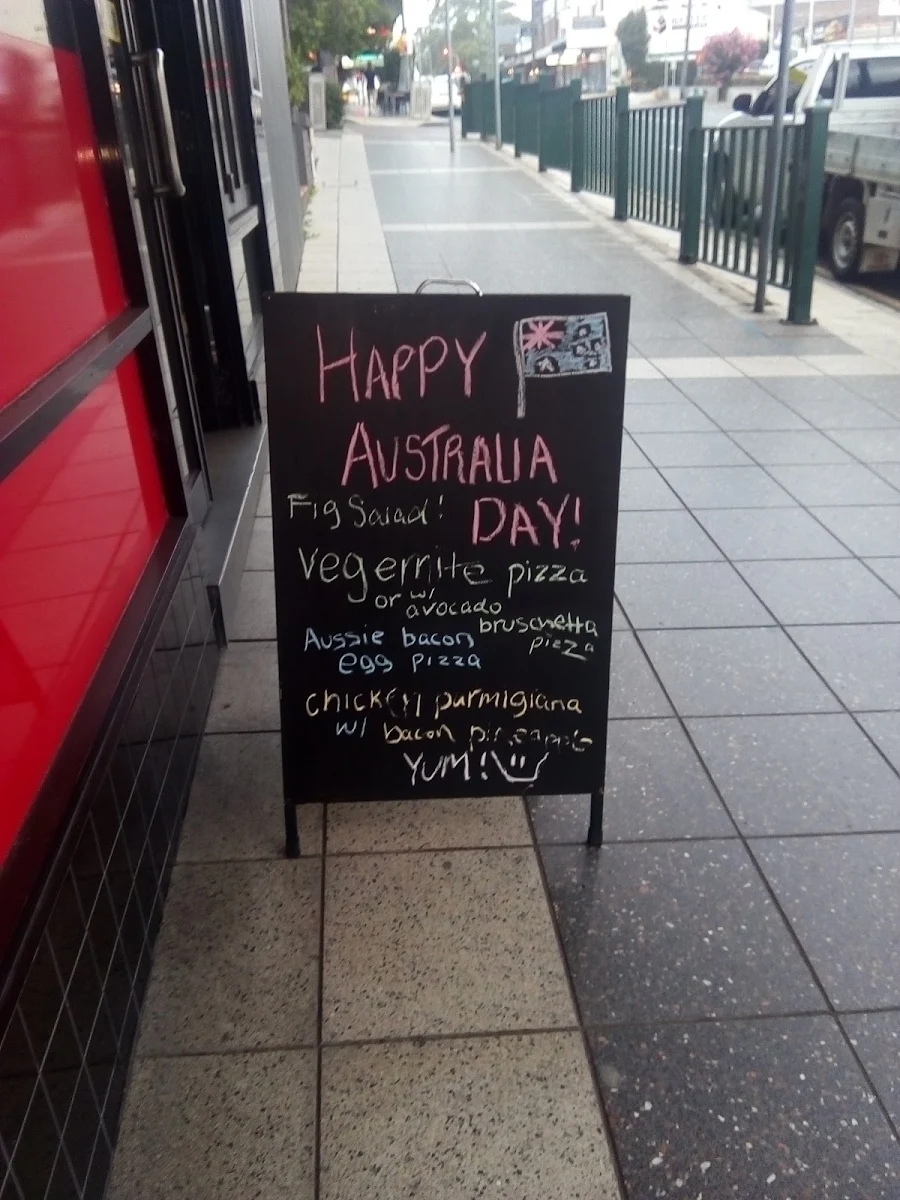 HAPPY
AUSTRALIA
DAY!
Fig Salad!
Vegemite pizza
or w/ avocado
bruschetta
pizza
Aussie bacon
egg pizza
chicken parmigiana
w/ bacon pineapple
YUM!